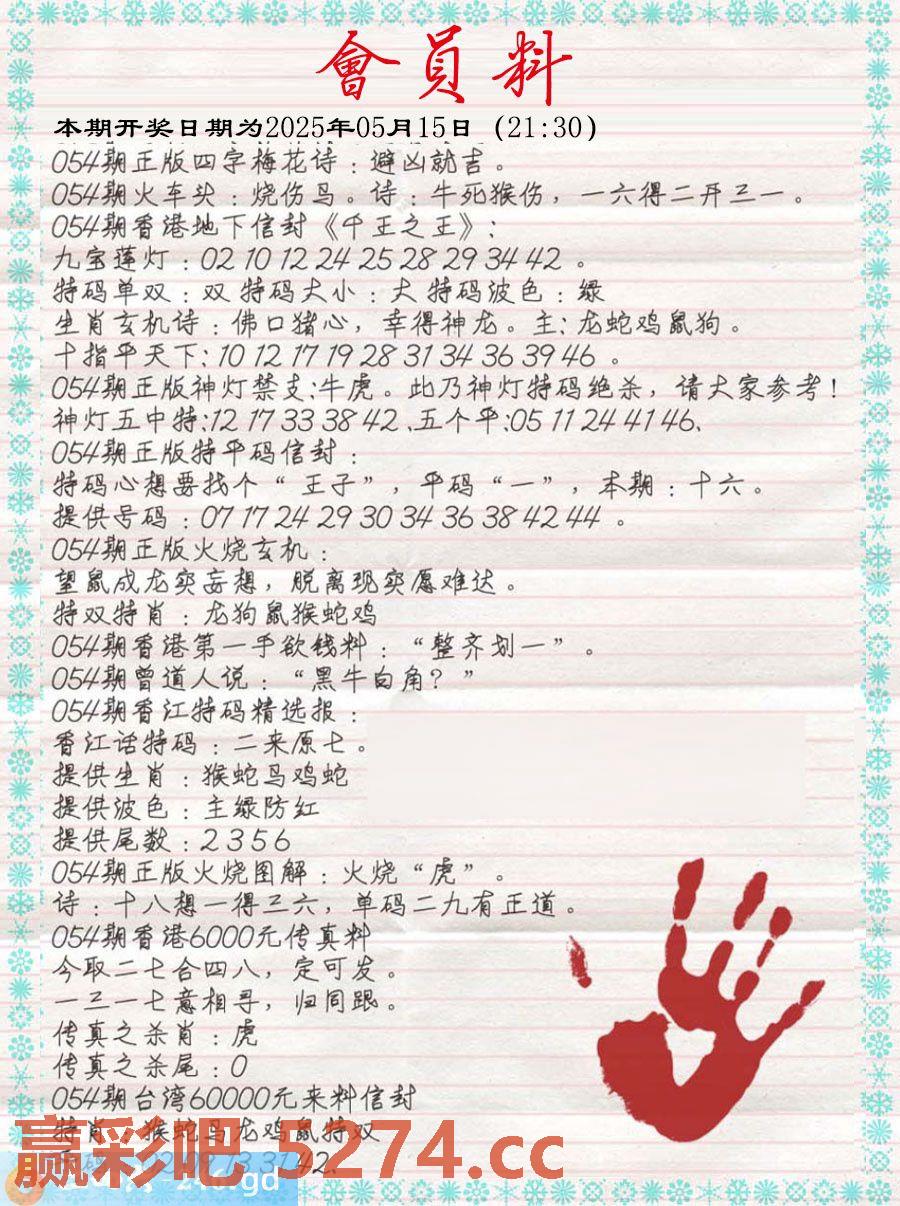 會員料
本期开奖日期为2025年05月15日 (21:30)
054期正版四字梅花诗：避凶就吉。
054期火车头：烧伤鸟。诗：牛死猴伤，一六得二开三一。
054期香港地下信封《千王之王》：
九宝莲灯：02 10 12 24 25 28 29 34 42 。
特码单双：双 特码大小：大 特码波色：绿
生肖玄机诗：佛口猪心，幸得神龙。主：龙蛇鸡鼠狗。
十指平天下：10 12 17 19 28 31 34 36 39 46 。
054期正版神灯禁支：牛虎。此乃神灯特码绝杀，请大家参考！
神灯五中特：12 17 33 38 42 、五个平：05 11 24 41 46、
054期正版特平码信封：
特码心想要找个“ 王子”，平码“一”，本期：十六。
提供号码：07 17 24 29 30 34 36 38 42 44 。
054期正版火烧玄机：
望鼠成龙实妄想，脱离现实愿难达。
特双特肖：龙狗鼠猴蛇鸡
054期香港第一手欲钱料：“整齐划一”。
054期曾道人说：“黑牛白角？”
054期香江特码精选报：
香江话特码：二来原七。
提供生肖：猴蛇马鸡蛇
提供波色：主绿防红
提供尾数：2 3 5 6
054期正版火烧图解：火烧“虎”。
诗：十八想一得三六，单码二九有正道。
054期香港6000元传真料
今取二七合四八，定可发。
一三一七意相寻，归同跟。
传真之杀肖：虎
传真之杀尾：0
054期台湾60000元来料信封
特肖：猴蛇马龙鸡鼠特双
赢彩吧 5274.cc
42.